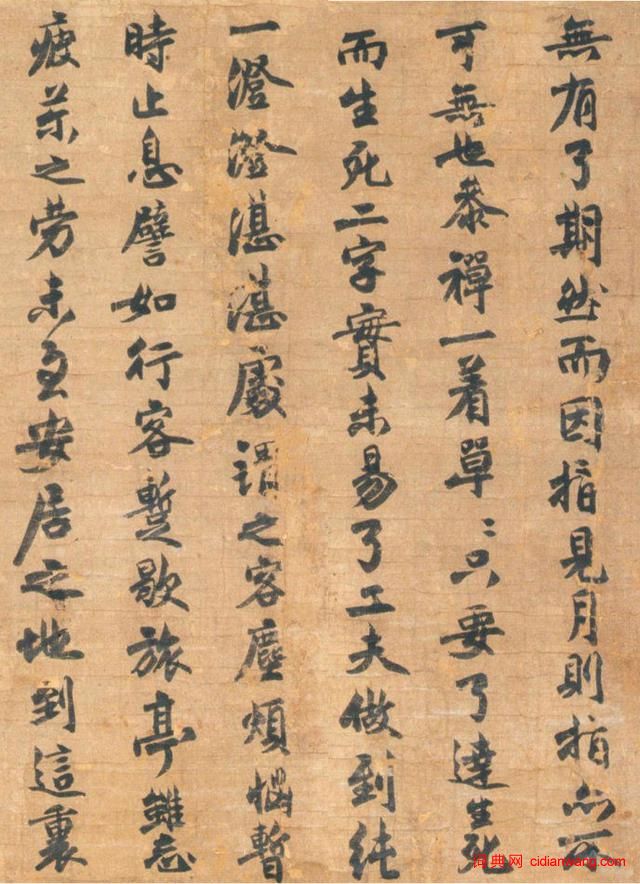 無有了期然而因指見月則指亦不
可無也叅禪一着單〻只要了達生死
而生死二字實未易了工夫做到純
一澄澄湛湛處謂之客塵煩惱暫
時止息譬如行客蹔歇旅亭雖忘
疲苶之勞未至安居之地到這裏
词典网 cidianwang.com